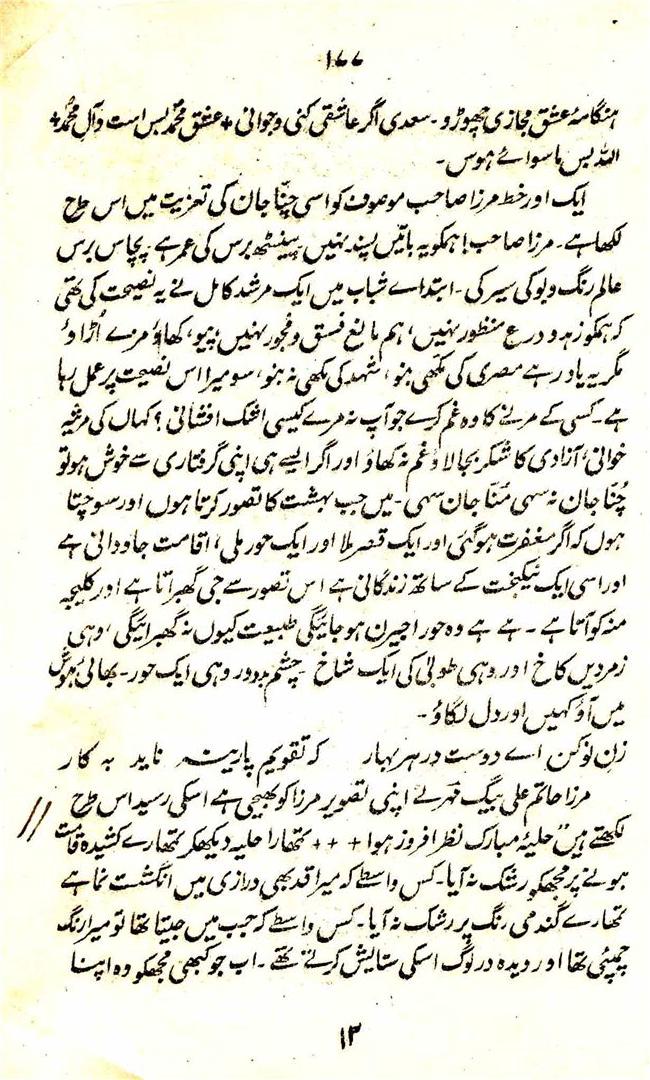 ۱۷۷
ہنگامۂ عشق مجازی چھوڑو۔ سعدی اگر عاشقی کنی و جوانی + عشق محمدؐ بس است و آل محمدؐ +
اللہ بس ماسوائے ہوس۔
ایک اور خط مرزا صاحب موصوف کو اسی چنّا جان کی تعزیت میں اس طرح
لکھا ہے۔ مرزا صاحب! ہمکو یہ باتیں پسند نہیں۔ پینسٹھ برس کی عمر ہے۔ پچاس برس
عالم رنگ و بو کی سیر کی۔ ابتدائے شباب میں ایک مرشد کامل نے یہ نصیحت کی تھی
کہ ہمکو زہد و ورع منظور نہیں، ہم مانع فسق و فجور نہیں، پیو، کھاؤ مزے اُڑاؤ
مگر یہ یاد رہے مصری کی مکھی بنو، شہد کی مکھی نہ بنو، سو میرا اس نصیحت پر عمل رہا
ہے۔ کسی کے مرنے کا وہ غم کرے جو آپ نہ مرے کیسی اشک افشانی؟ کہاں کی مرثیہ
خوانی، آزادی کا شکر بجا لاؤ غم نہ کھاؤ اور اگر ایسے ہی اپنی گرفتاری سے خوش ہو تو
چُنّا جان نہ سہی مُنّا جان سہی۔ میں جب بہشت کا تصور کرتا ہوں اور سوچتا
ہوں کہ اگر مغفرت ہو گئی اور ایک قصر ملا اور ایک حور ملی، اقامت جاودانی ہے
اور اسی ایک نیکبخت کے ساتھ زندگانی ہے اس تصور سے جی گھبراتا ہے اور کلیجہ
منہ کو آتا ہے۔ ہے ہے وہ حور اجیرن ہو جائیگی طبیعت کیوں نہ گھبرائیگی، وہی
زمردیں کاخ اور وہی طوبیٰ کی ایک شاخ۔ چشم بد دور وہی ایک حور۔ بھائی ہوش
میں آؤ کہیں اور دل لگاؤ۔
زن نو کن اے دوست در ہر بہار کہ تقویم پارینہ ناید بہ کار
مرزا حاتم علی بیگ مہر نے اپنی تصویر مرزا کو بھیجی ہے اسکی رسید اس طرح
لکھتے ہیں "حلیۂ مبارک نظر افروز ہوا + + + تمھارا حلیہ دیکھکر تمھارے کشیدہ قامت
ہونے پر مجھکو رشک نہ آیا۔ کس واسطے کہ میرا قد بھی درازی میں انگشت نما ہے
تمھارے گندمی رنگ پر رشک نہ آیا۔ کس واسطے کہ جب میں جیتا تھا تو میرا رنگ
چمپئی تھا اور دیدہ ور لوگ اسکی ستایش کرتے تھے۔ اب جو کبھی مجھکو وہ اپنا
۱۲